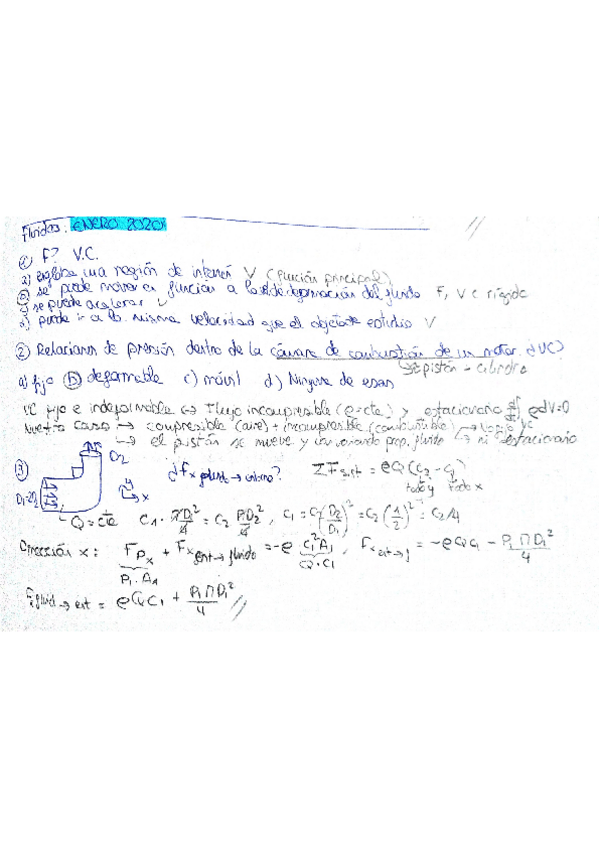 Fluidos. ENERO 2020
① F? V.C.
a) engloba una región de interés V (función principal)
b) se puede mover en función a la deformación del fluido F, VC rígido
c) se puede acelerar V
d) puede ir a la misma velocidad que el objeto estudio V
② Relaciones de presión dentro de la cámara de combustión de un motor. ¿VC?
pistón - cilindro
a) fijo b) deformable c) móvil d) Ninguna de esas
VC fijo e indeformable ↔ Flujo incompresible (ρ=cte) y estacionario ρdV=0
Nuestro caso → compresible (aire) + incompresible (combustible)
→ el pistón se mueve y van variando prop. fluido → ni estacionario
③ D2 ¿Fx fluid → entorno? ΣFext = ρQ(c2 - c1)
todo y todo x
D1=2D2 y x
Q = cte c1· πD1²/4 = c2 πD2²/4, c1 = c2(D2/D1)² = c2(1/2)² = c2/4
Dirección x: Fpx + Fx ent→fluido = -ρ c1² A1, Fx ent→f = -ρQc1 - P1ΠD1²/4
P1·A1 Q·c1
Fx fluid → ext = ρQc1 + P1ΠD1²/4 //